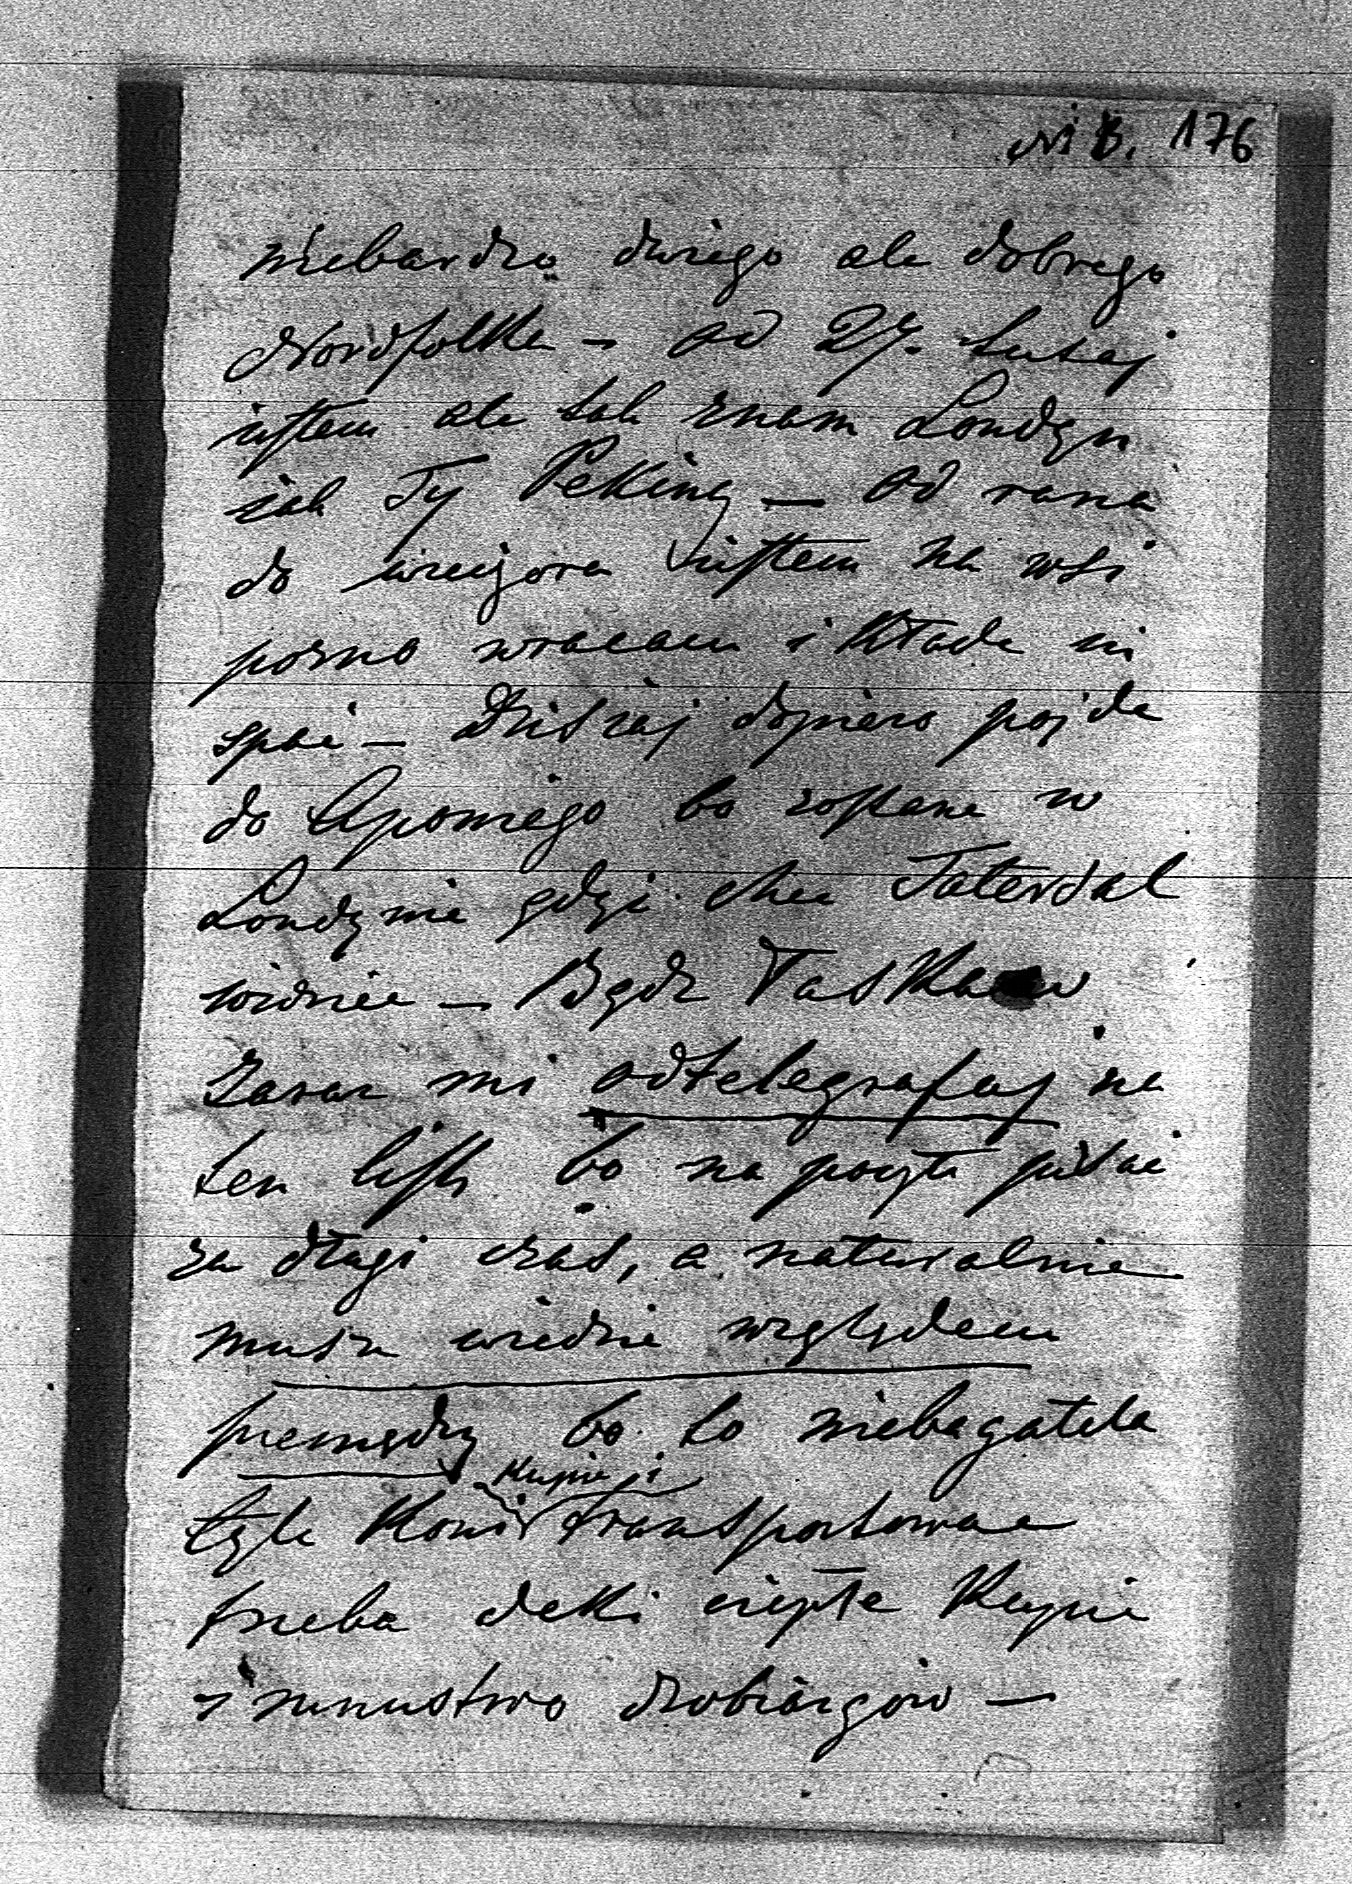 NB. 176
niebardzo dużego ale dobrego
Nordfolka — od 27. tutaj
jestem ale tak znam Londyn
jak Ty Peking — od rana
do wieczora jestem na wsi
pozno wracam i kłade się
spać — Dzisiaj dopiero pojde
do bo zostane w
Londynie gdyż chce Tatersal
widziec — Bądz łaskaw
zaraz mi odtelegrafuj na
ten list bo na poczte pisac
za długi czas, a naturalnie
musze wiedzie względem
pieniędzy bo to niebagatela
kupic i
tyle koni transportowac
trzeba deki ciepłe kupic
i mnustwo drobiazgów —